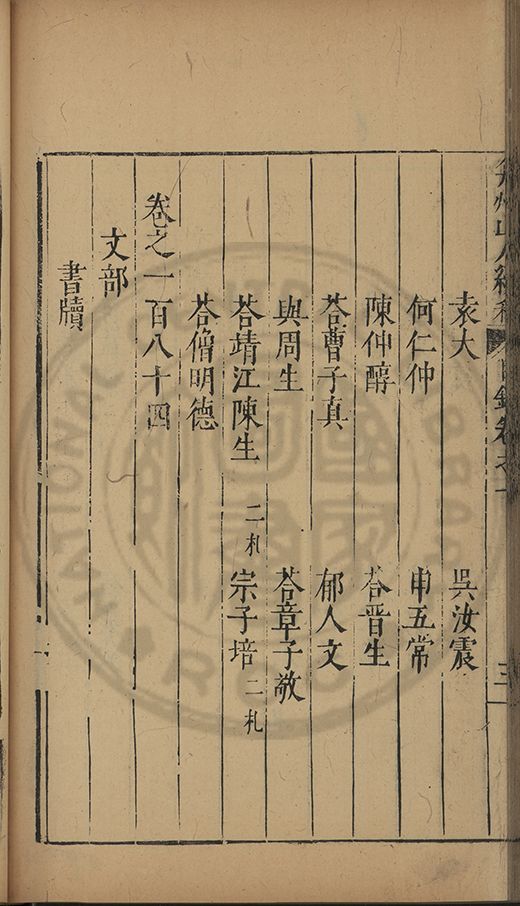 弇州山人續稿 目錄卷之十 三
袁大 吳汝震
何仁仲 申五常
陳仲醇 荅晋生
荅曹子真 郁人文
與周生 荅章子敬
荅靖江陳生 二札 宗子培 二札
荅僧明德
卷之一百八十四
文部
書牘